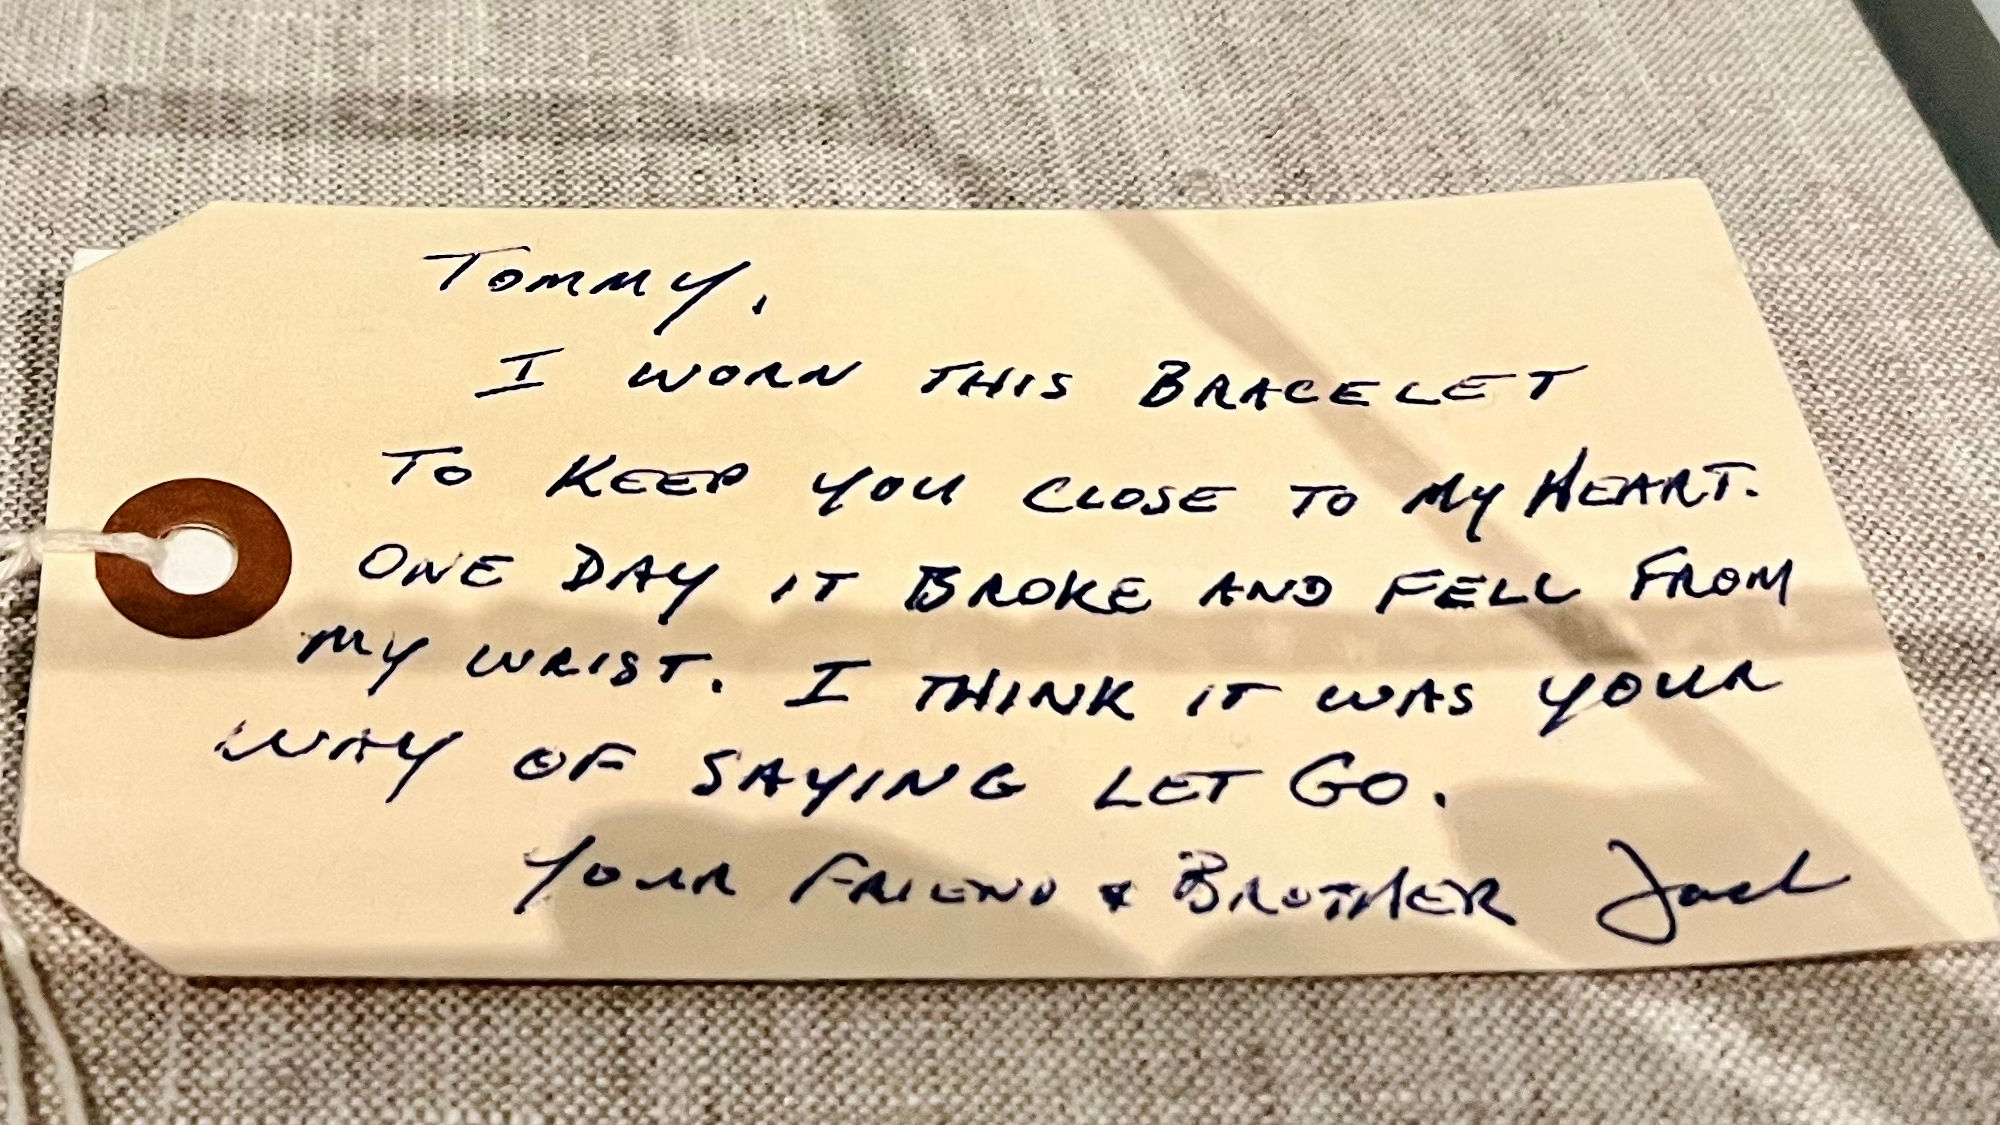 Tommy,
I WORN THIS BRACELET
TO KEEP YOU CLOSE TO MY HEART.
ONE DAY IT BROKE AND FELL FROM
MY WRIST. I THINK IT WAS YOUR
WAY OF SAYING LET GO.
YOUR FRIEND & BROTHER Jack